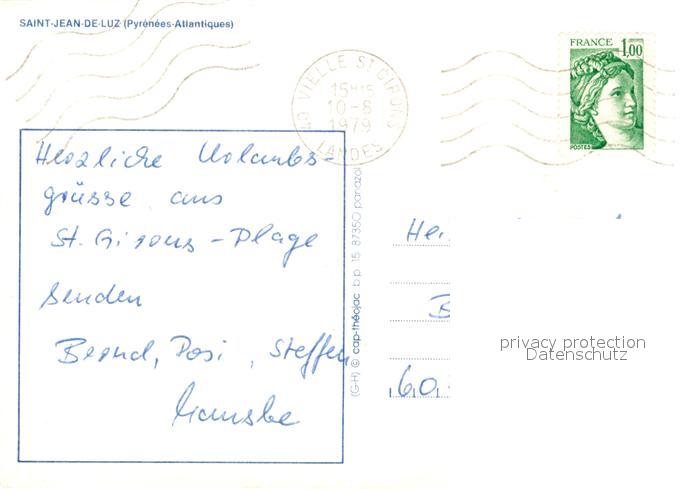 SAINT-JEAN-DE-LUZ (Pyrénées-Atlantiques)
40 VIELLE ST GIRONS
15H15
10-8
1979
LANDES
FRANCE
1,00
POSTES
Herzliche Urlaubs-
grüsse aus
St. Girons - Plage
senden
Bernd, Posi, Steffen
(G-H) © cap-théojac b.p. 15 87350 panazol
60
privacy protection
Datenschutz